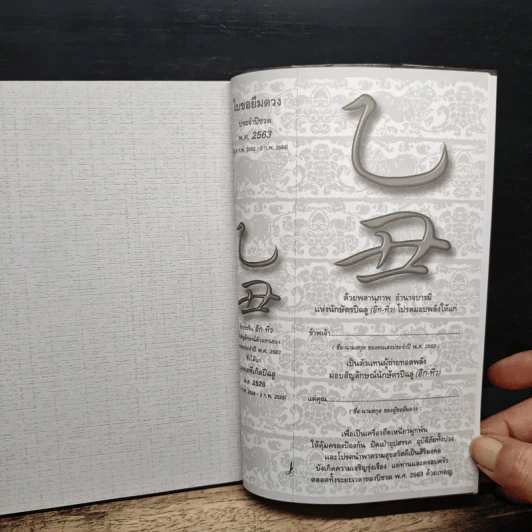 ใบขอยืมดวง
ประจำปีชวด
พ.ศ. 2563
乙
丑
乙
丑
ด้วยพลานุภาพ อำนาจบารมี
แห่งนักษัตรปีฉลู (อิก-ทิ่ว) โปรดมอบพลังให้แก่
ข้าพเจ้า
เป็นตัวแทนผู้ถ่ายทอดพลัง
มอบสัญลักษณ์นักษัตรปีฉลู (อิก-ทิ่ว)
แด่คุณ
( ชื่อ-นามสกุล ของผู้ขอยืมดวง )
เพื่อเป็นเครื่องยึดเหนี่ยวผูกพัน
ให้คุ้มครองป้องกัน ปัดเป่าอุปสรรค อุบัติภัยทั้งปวง
และโปรดนำพาความสุขสวัสดิ์เป็นสิริมงคล
บังเกิดความเจริญรุ่งเรือง แด่ท่านและครอบครัว
ตลอดทั้งระยะเวลาของปีชวด พ.ศ. 2563 ด้วยเทอญ